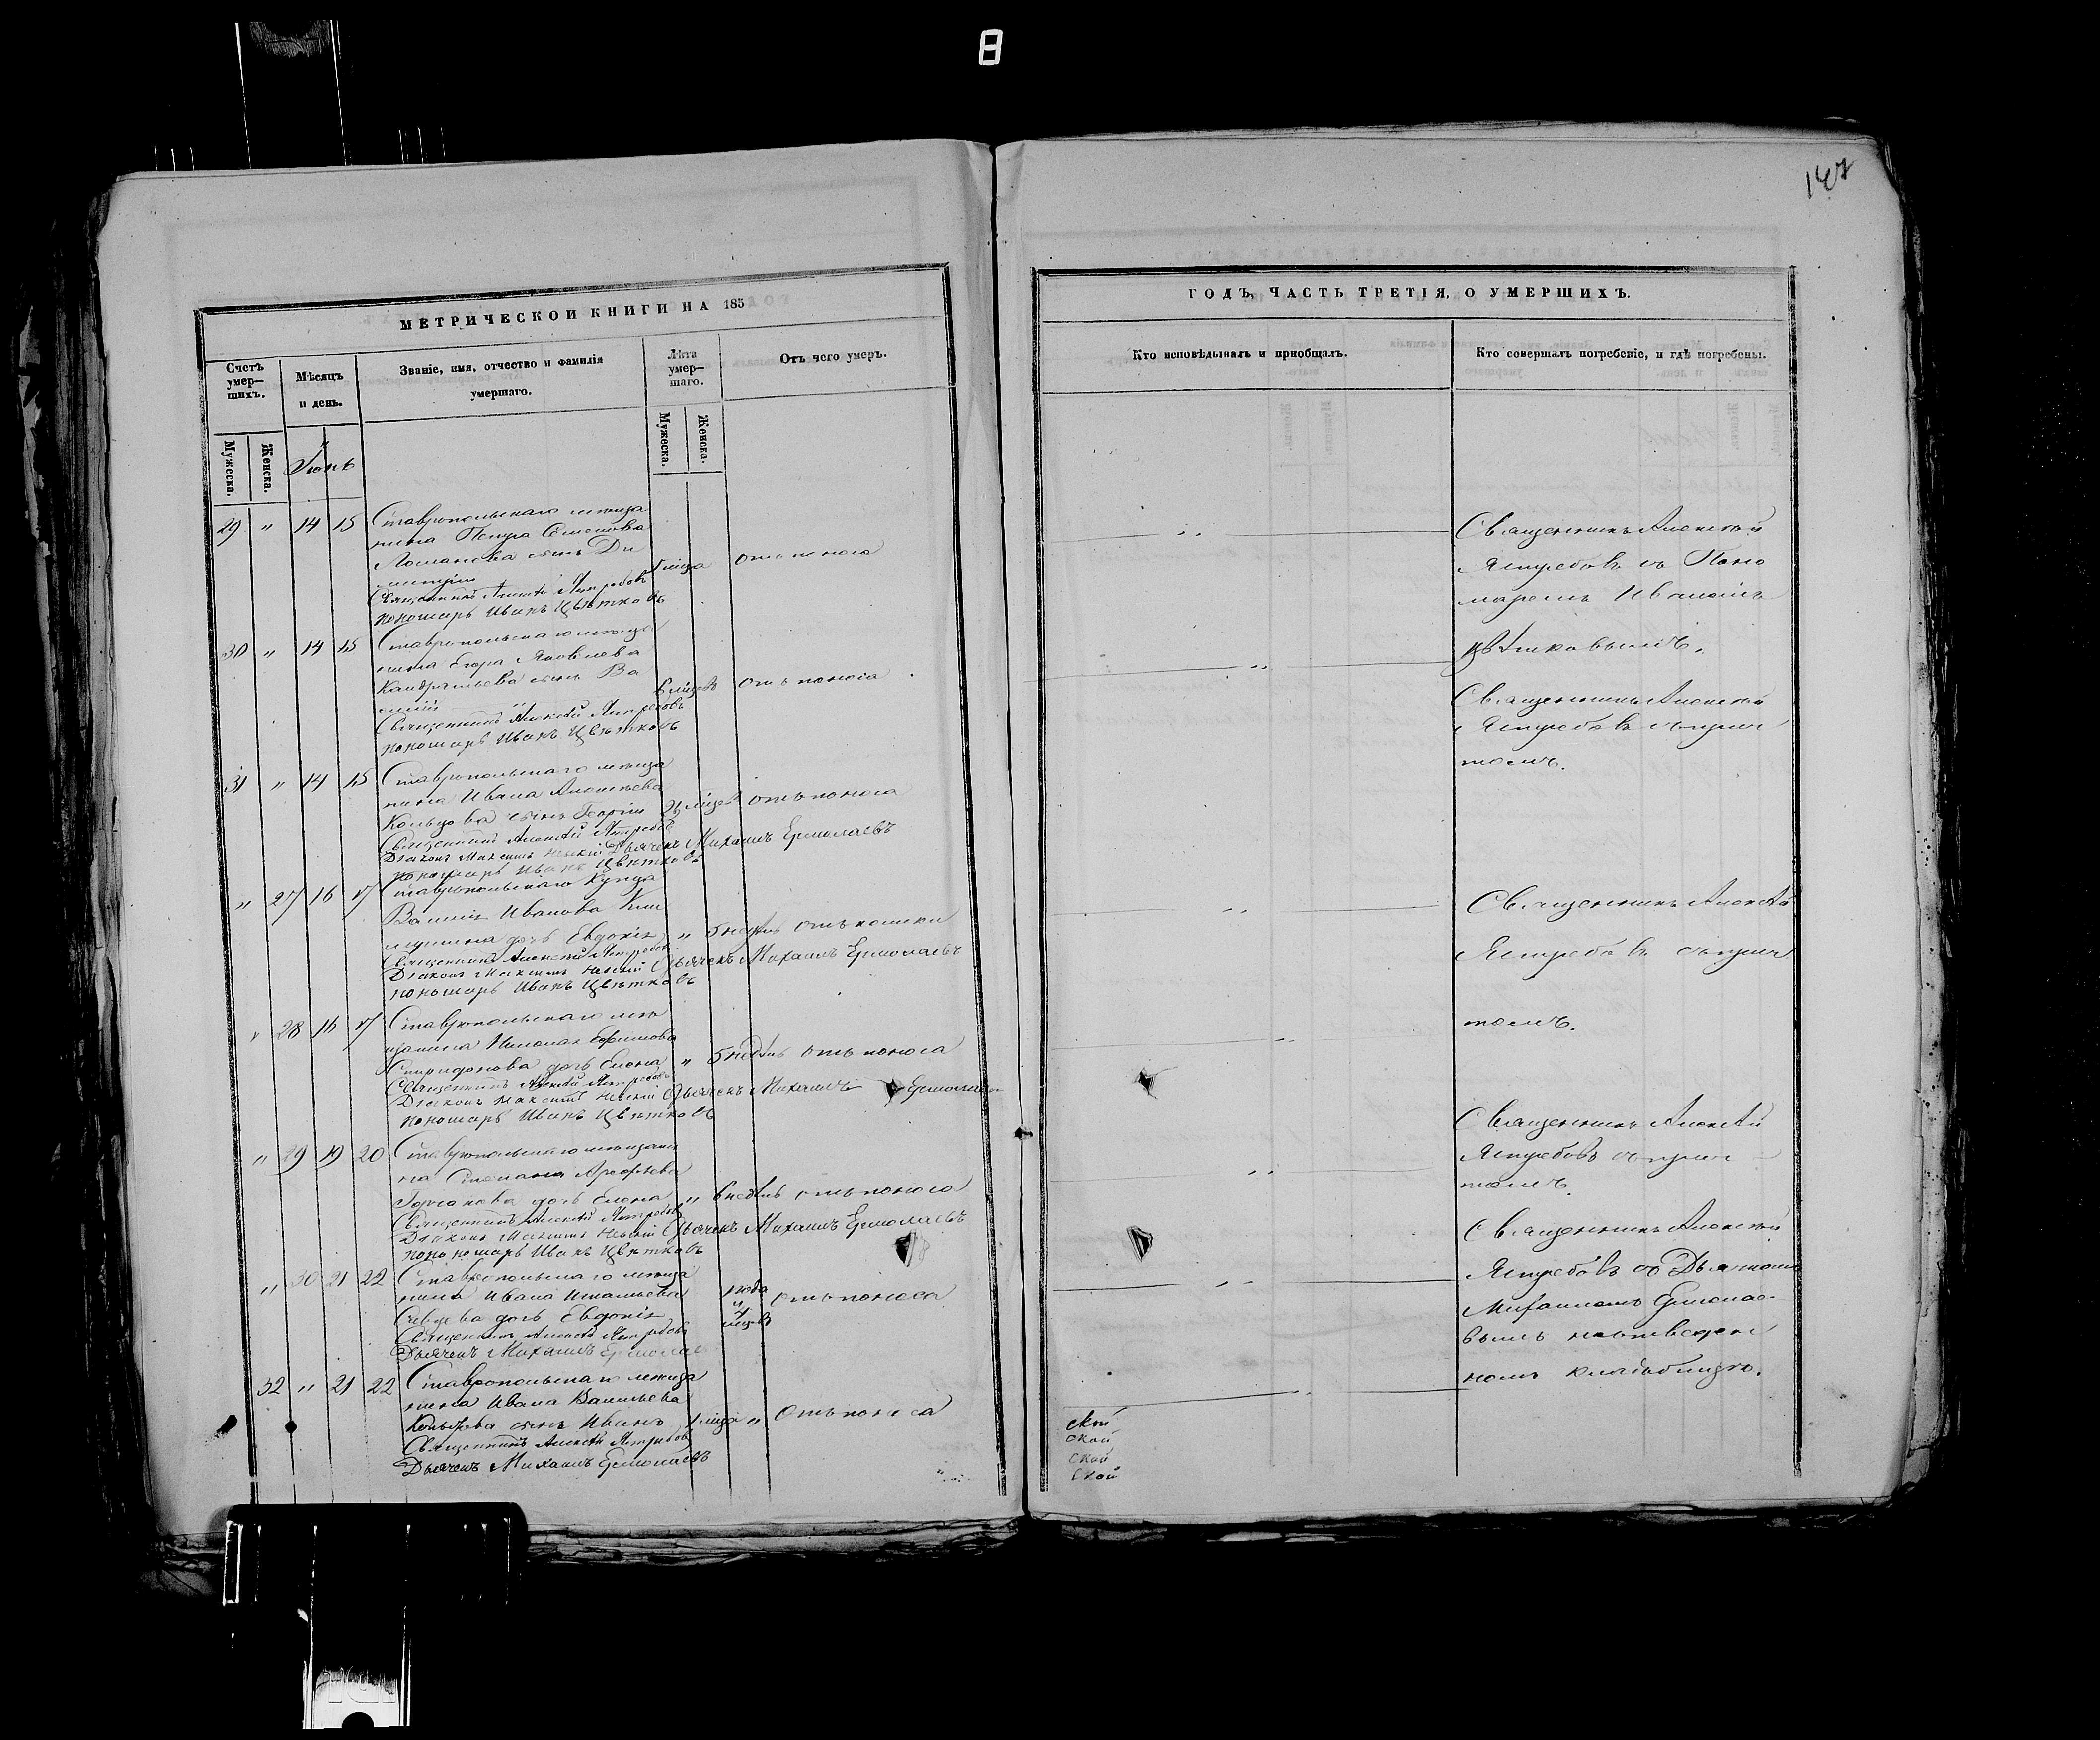 8
147
МЕТРИЧЕСКОЙ КНИГИ НА 185
Счетъ умер—шихъ.
Мѣсяцъ и день.
Званіе, имя, отчество и фамилія умершаго.
Лѣта умер—шаго.
Отъ чего умеръ.
Мужеска.
Женска.
Іюнь
Мужеска.
Женска.
29 " 14 15 Ставропольскаго мѣща
нина Петра Семенова
сынъ Ди
митрій
мѣсяца отъ поноса
Священникъ Алексѣй Ястребовъ
Пономарь Иванъ Цвѣтковъ
30 " 14 15 Ставропольскаго мѣща
нина Егора Яковлева
Кандратьева сынъ Ва
силій
6 мѣсцовъ отъ поноса
Священникъ Алексѣй Ястребовъ
Пономарь Иванъ Цвѣтковъ
31 " 14 15 Ставропольскаго мѣща
нина Ивана Алексѣева
Кольцова сынъ Георгій
мѣсцов отъ поноса
Священникъ Алексѣй Ястребовъ
Діаконъ Максимъ Невскій Дьячекъ Михаилъ Ермолаевъ
Пономарь Иванъ Цвѣтковъ
" 27 16 17 Ставропольскаго Купца
Василія Иванова
дочь Евдокія " 5 недѣль отъ
Священникъ Алексѣй Ястребовъ
Діаконъ Максимъ Невскій Дьячекъ Михаилъ Ермолаевъ
Пономарь Иванъ Цвѣтковъ
" 28 16 17 Ставропольскаго мѣ
щанина Николая Ефимова
Спиридонова дочь Елена " 5 недѣль отъ поноса
Священникъ Алексѣй Ястребовъ
Діаконъ Максимъ Невскій Дьячекъ Михаилъ Ермолаевъ
Пономарь Иванъ Цвѣтковъ
" 29 19 20 Ставропольскаго мѣщани
на Стефана Арефьева
дочь Елена " 6 недѣль отъ поноса
Священникъ Алексѣй Ястребовъ
Діаконъ Максимъ Невскій Дьячекъ Михаилъ Ермолаевъ
Пономарь Иванъ Цвѣтковъ
" 30 21 22 Ставропольскаго мѣща
нина Ивана
дочь Евдокія
года и мѣсцовъ отъ поноса
Священникъ Алексѣй Ястребовъ
Дьячекъ Михаилъ Ермолаевъ
32 " 21 22 Ставропольскаго мѣща
нина Ивана Васильева
сынъ Иванъ мѣсяца " Отъ поноса
Священникъ Алексѣй Ястребовъ
Дьячекъ Михаилъ Ермолаевъ
ГОДЪ, ЧАСТЬ ТРЕТІЯ, О УМЕРШИХЪ.
Кто исповѣдывалъ и пріобщалъ.
Кто совершалъ погребеніе, и гдѣ погребены.
Священникъ Алексѣй
Ястребовъ съ Поно
маремъ Иваномъ
Цвѣтковымъ.
Священникъ Алексѣй
Ястребовъ съ прич
томъ.
Священникъ Алексѣй
Ястребовъ съ прич
томъ.
Священникъ Алексѣй
Ястребовъ съ прич
томъ.
Священникъ Алексѣй
Ястребовъ съ Дьячкомъ
Михаиломъ Ермолае
вымъ на отведен
номъ кладбищѣ.
ской
ской
ской
ской